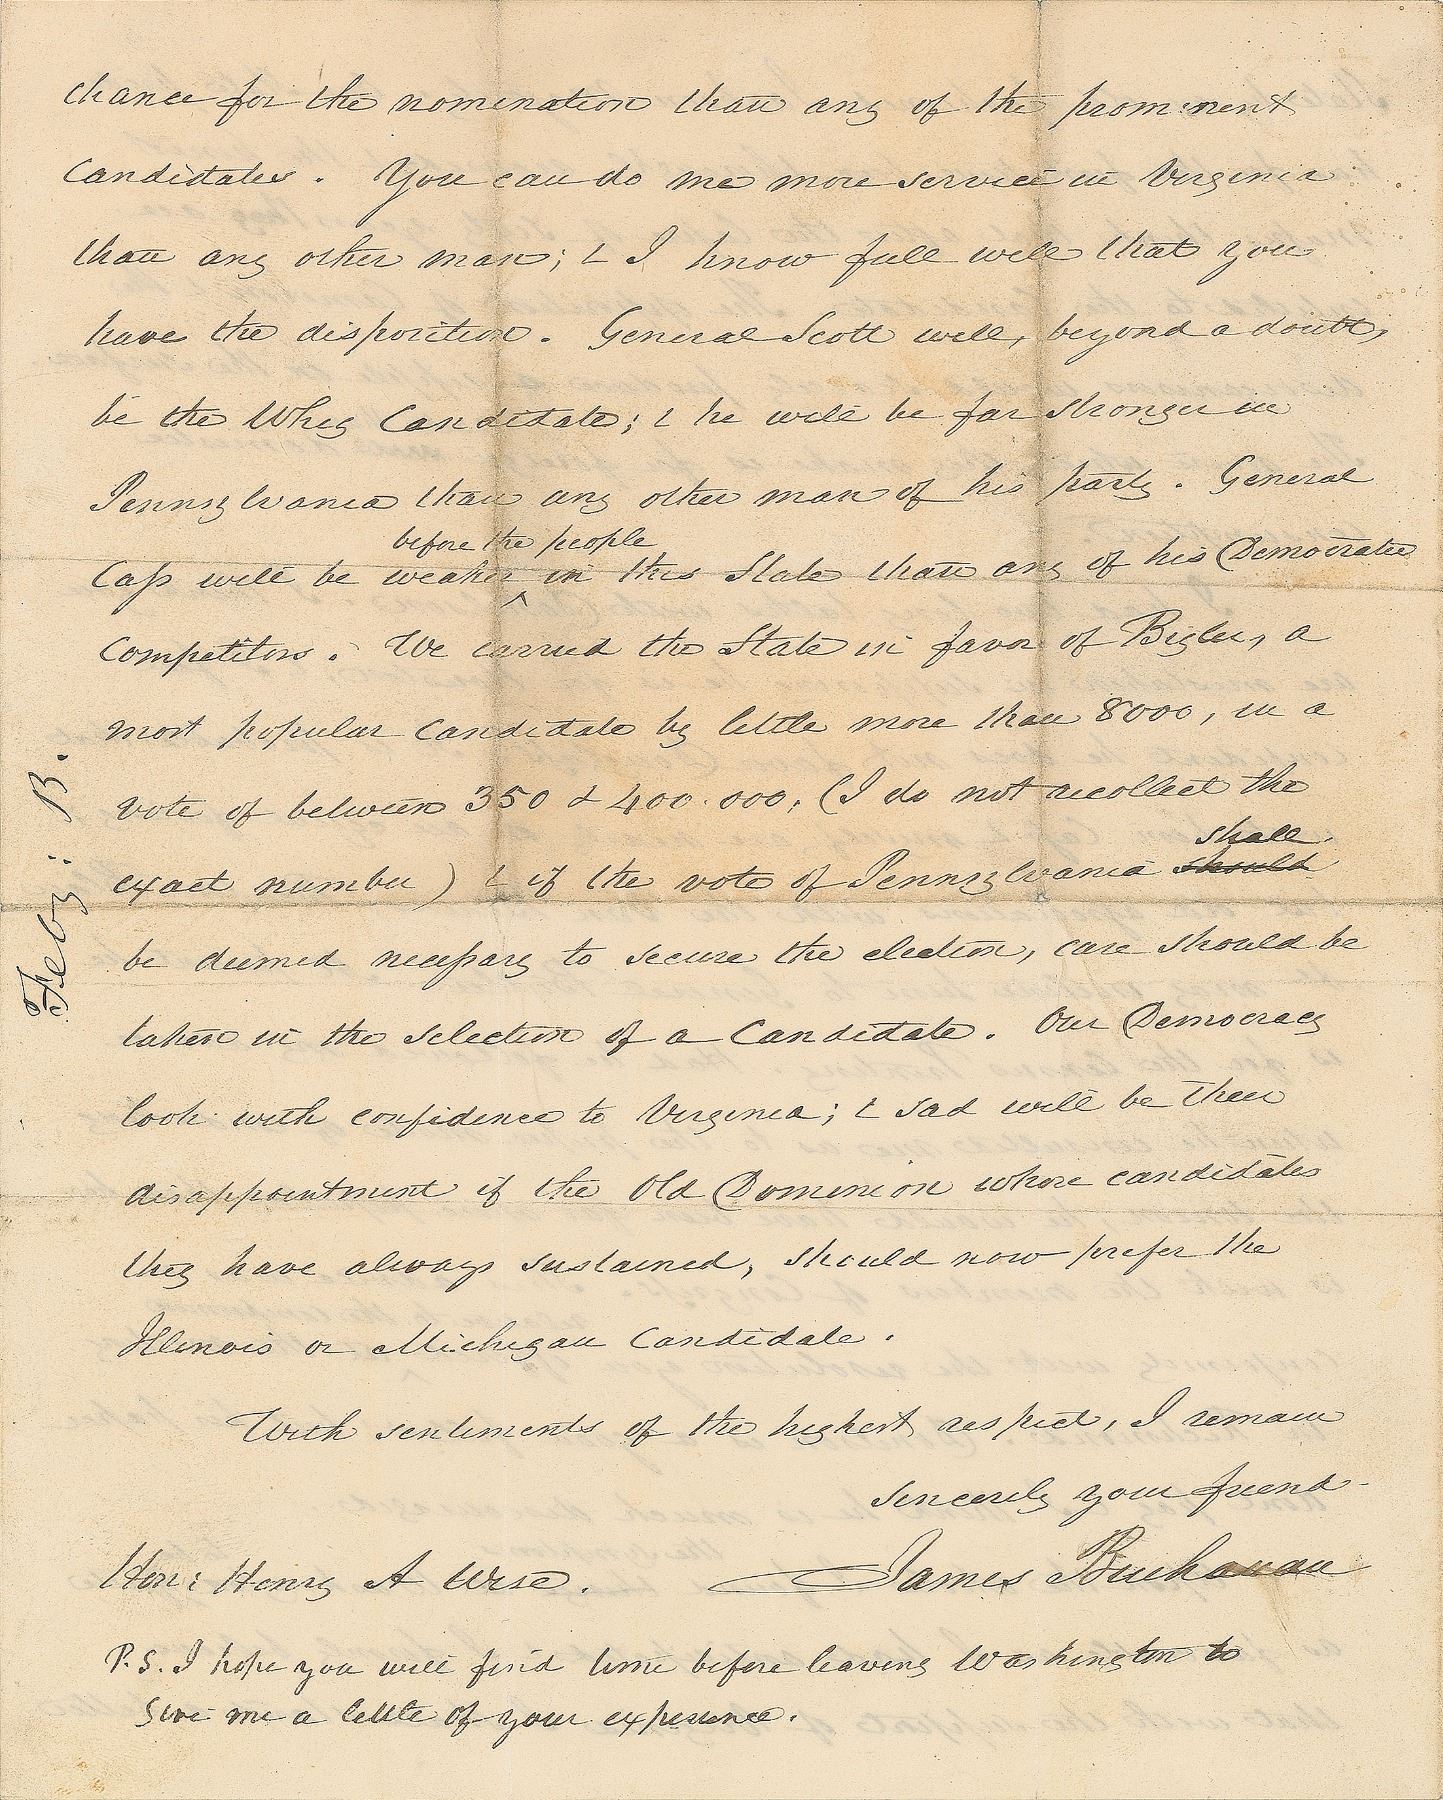 chance for the nomination than any of the prominent
Candidates. You can do me more service in Virginia
than any other man; & I know full well that you
have the disposition. General Scott will, beyond a doubt,
be the Whig Candidate; & he will be far stronger in
Pennsylvania than any other man of his party. General
before the people
Cass will be weaker ^ in this State than any of his Democratic
Competitors. We carried the State in favor of Bigler, a
most popular Candidate by little more than 8000, in a
vote of between 350 & 400.000, (I do not recollect the
shall
exact number) & if the vote of Pennsylvania should
be deemed necessary to secure the election, care should be
taken in the selection of a Candidate. Our Democracy
look with confidence to Virginia; & sad will be their
disappointment if the Old Dominion whose candidates
they have always sustained, should now prefer the
Illinois or Michigan Candidate.
With sentiments of the highest respect, I remain
sincerely your friend
James Buchanan
Hon: Henry A Wise.
P.S. I hope you will find time before leaving Washington to
give me a little of your experience.
Feby: B.